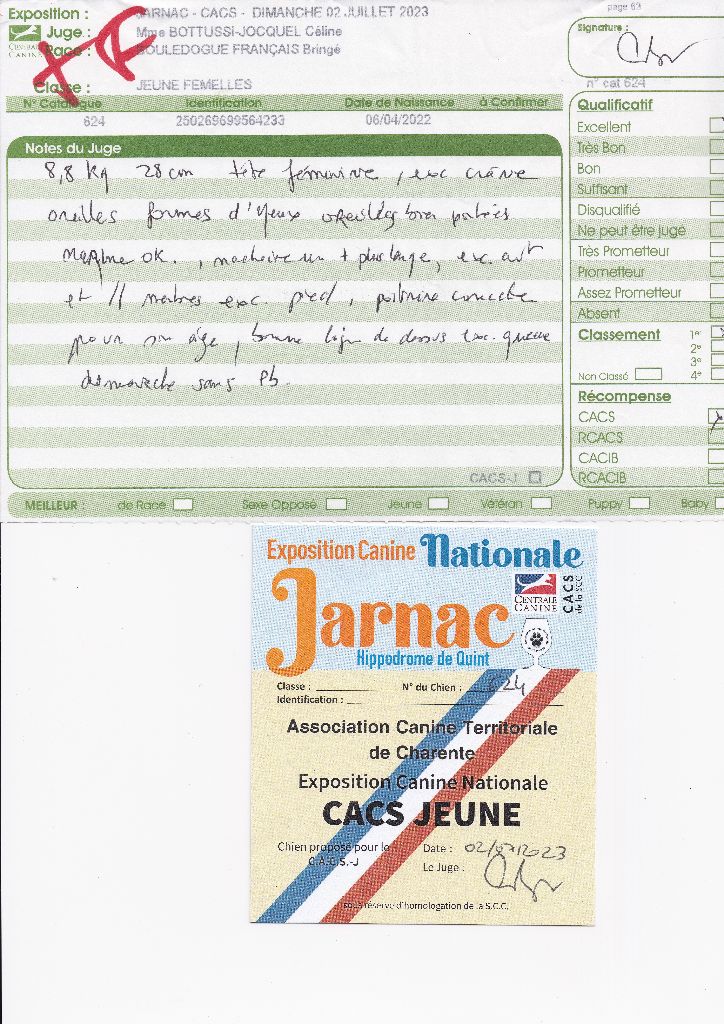 page 63
Exposition : JARNAC - CACS - DIMANCHE 02 JUILLET 2023
Juge : Mme BOTTUSSI-JOCQUEL Céline
Race : BOULEDOGUE FRANÇAIS Bringé
CENTRALE CANINE
Classe : JEUNE FEMELLES
N° Catalogue Identification Date de Naissance à Confirmer
624 250269699564233 06/04/2022
Signature :
n° cat 624
Notes du Juge
8,8 kg 28 cm tête féminine, exc crâne
oreilles formes d'yeux oreilles bien portées
ok., machoire un + plus large, exc. avt
et // membres exc. pied, poitrine
pour son âge, bonne ligne de dessus exc. queue
démarche sans pb.
CACS-J
Qualificatif
Excellent
Très Bon
Bon
Suffisant
Disqualifié
Ne peut être jugé
Très Prometteur
Prometteur
Assez Prometteur
Absent
Classement 1e
2e
3e
Non Classé 4e
Récompense
CACS
RCACS
CACIB
RCACIB
MEILLEUR : de Race Sexe Opposé Jeune Vétéran Puppy Baby
Exposition Canine Nationale
Jarnac
Hippodrome de Quint
CENTRALE CANINE
CACS de la SCC
Classe : N° du Chien : 624
Identification :
Association Canine Territoriale
de Charente
Exposition Canine Nationale
CACS JEUNE
Chien proposé pour le
C.A.C.S.-J
Date : 02/07/2023
Le Juge :
sous réserve d'homologation de la S.C.C.